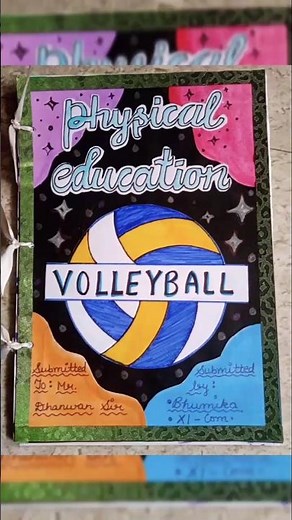 physical
education
VOLLEYBALL
Submitted
To: Mr.
Dhanwar Sir
Submitted
by:
•Bhumika
•XI-Com•